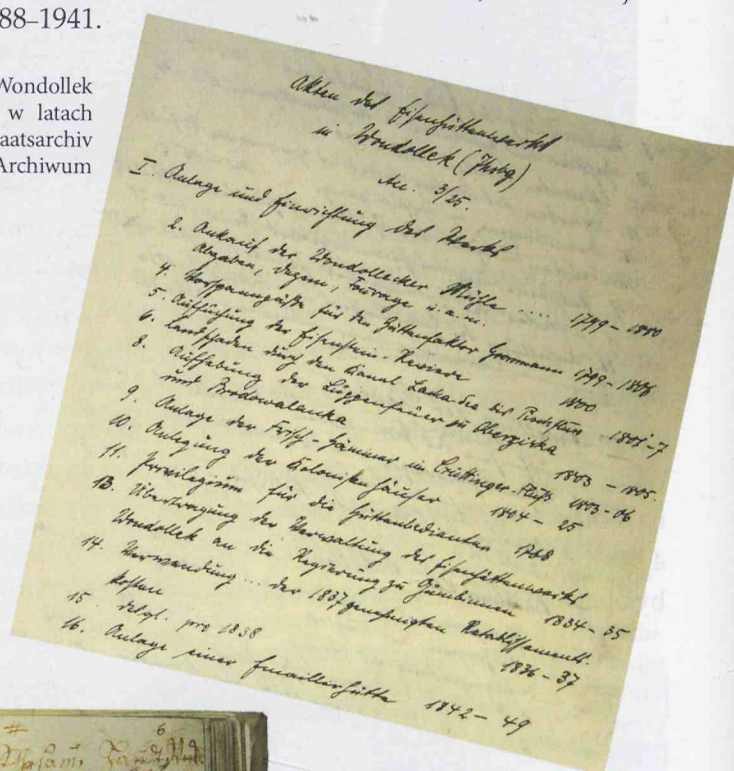 88–1941.
Wondollek
w latach
aatsarchiv
Archiwum
Akten des Eisenhüttenwerks
in Wondollek (Jhsbg)
Acc. 3/25.
I. Anlage und Einrichtung des Werks
2. Ankauf der Wondollecker Mühle .... 1799 – 1800
Abgaben, Dezem, Fourage u.a.m.
4. Vorspannpässe für den Hüttenfaktor 1799 – 1808
5. Aufsuchung der Eisenstein-Reviere 1800
6. Landschaden durch den Kanal bis 1805–7
8. Aufhebung der Luppenfeuer zu
und Brodowalanka 1803 – 1805.
9. Anlage der Frisch-Hämmer im Cruttinger-Fluß 1803–06
10. Anlegung der Kolonistenhäuser 1804 – 25
11. Privilegium für die Hüttenbedienten 1768
13. Übertragung der Verwaltung des Eisenhüttenwerks
Wondollek an die Regierung zu Gumbinnen 1834 – 35
14. Verwendung ... der 1837 genehmigten Retablissements-
kosten 1836 – 37
15. desgl. pro 1838
16. Anlage einer Emaillierhütte 1842 – 49
6